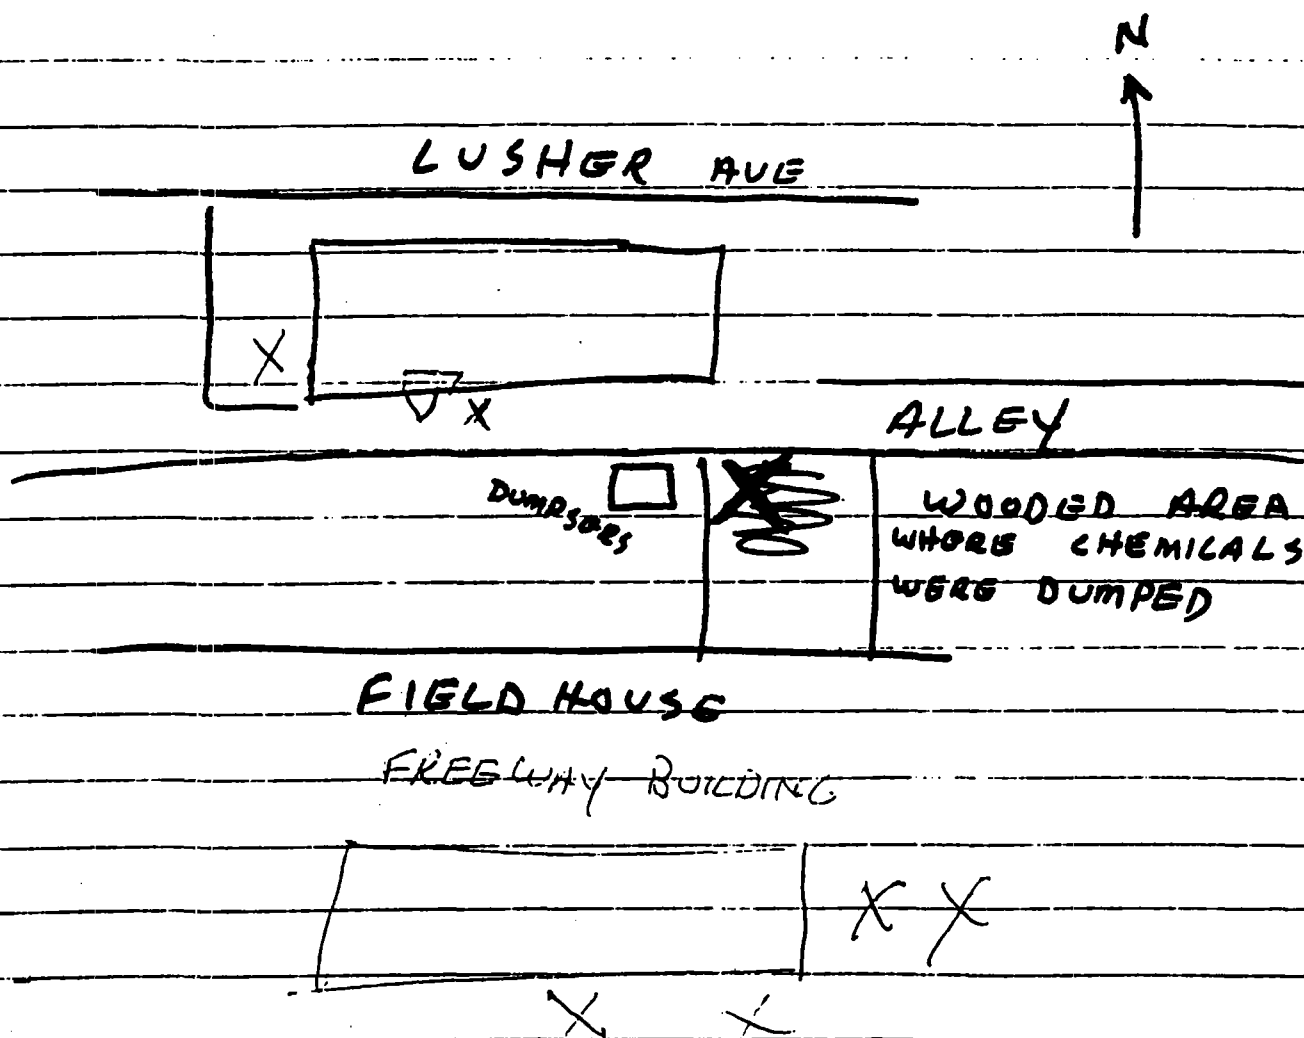 N
LUSHER AVE
X
X
ALLEY
DUMPSERS
X
WOODED AREA
WHERE CHEMICALS
WERE DUMPED
FIELD HOUSE
FREEWAY BUILDING
X X
X X